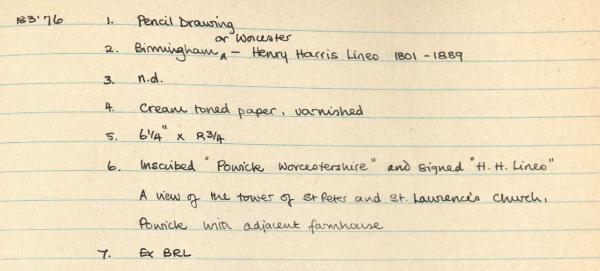 183'76 1. Pencil Drawing
or Worcester
2. Birmingham ^ - Henry Harris Lines 1801 - 1889
3. n.d.
4. Cream toned paper, varnished
5. 6 1/4" x 8 3/4
6. Inscribed "Powick Worcestershire" and signed "H. H. Lines"
A view of the tower of St Peter and St. Laurence's Church,
Powick with adjacent farmhouse
7. Ex BRL